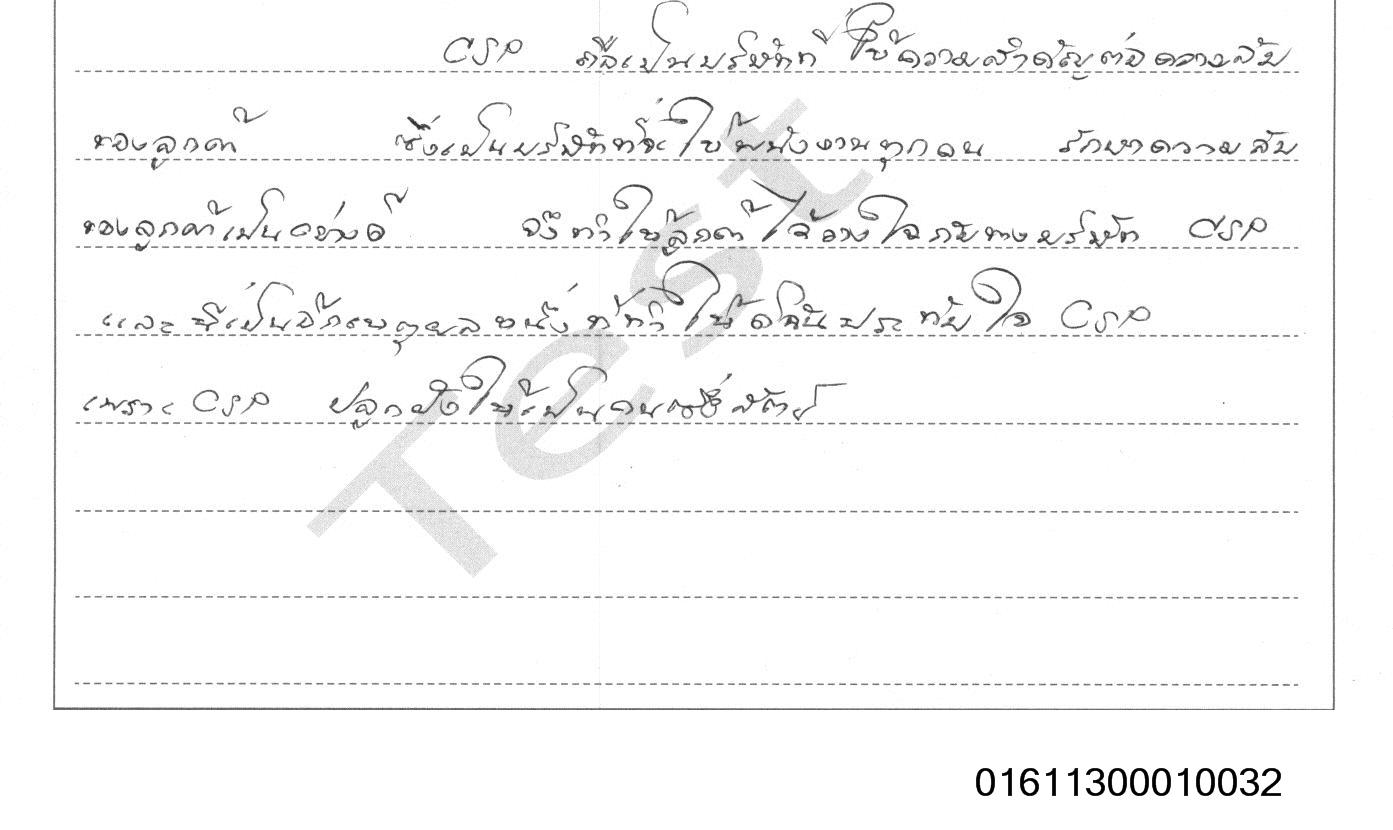 CSP ถือเป็นบริษัทที่ ให้ความสำคัญต่อความลับ
ของลูกค้า ซึ่งเป็นบริษัทที่จะให้พนักงานทุกคน รักษาความลับ
ของลูกค้าเป็นอย่างดี จึงทำให้ลูกค้าไว้วางใจกับทางบริษัท CSP
และนี่เป็นอีกเหตุผลหนึ่งที่ทำให้ดิฉันประทับใจ CSP
เพราะ CSP ปลูกฝังให้เป็นคนซื่อสัตย์
Test
01611300010032